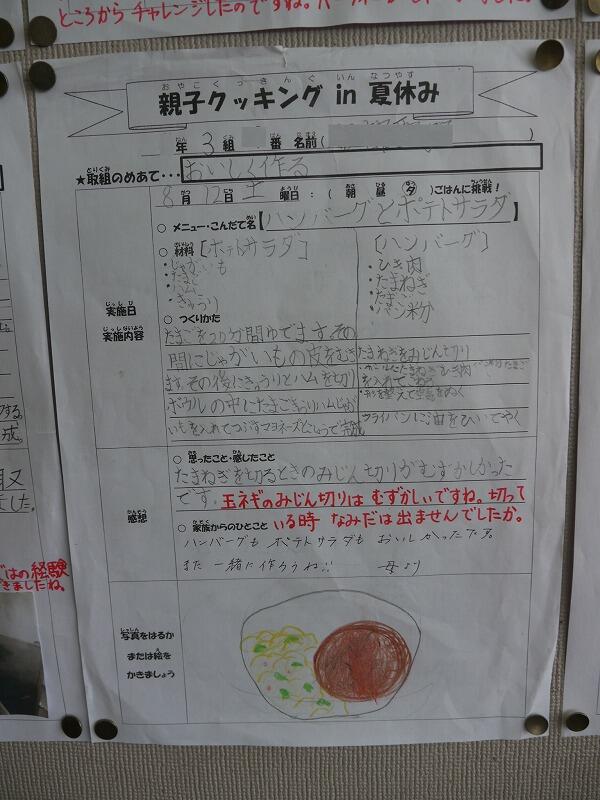 ところからチャレンジしたのですね。
おやこくっきんぐ いん なつやす
親子クッキング in 夏休み
年 3 組 番 名前( )
★取組のめあて・・・おいしく作る
8月12日 土 曜日:(朝 昼 夕)ごはんに挑戦!
○ メニュー・こんだて名【ハンバーグとポテトサラダ】
○ 材料 [ポテトサラダ]
・じゃがいも
・たまご
・ハム
・きゅうり
[ハンバーグ]
・ひき肉
・たまねぎ
・たまご
・パン粉
実施日
実施内容
○ つくりかた
たまごを 分間ゆでます。その
間にじゃがいもの皮をむき
ます。その後にきゅうりとハムを切り
ボウルの中にたまごきゅうりハムじゃが
いもを入れてつぶすマヨネーズとしょうで完成
たまねぎをみじん切り
・ボールにたまねぎひき肉
を入れてこねる
・形を整えて空気をぬく
フライパンに油をひいてやく
感想
○ 思ったこと・感じたこと
たまねぎを切るときのみじん切りがむずかしかった
です。玉ネギのみじん切りは むずかしいですね。切って
○ 家族からのひとこと いる時 なみだは出ませんでしたか。
ハンバーグも ポテトサラダも おいしかったです。
また 一緒に作ろうね!! 母より
写真をはるか
または絵を
かきましょう
成。
した。
の経験
きましたね。